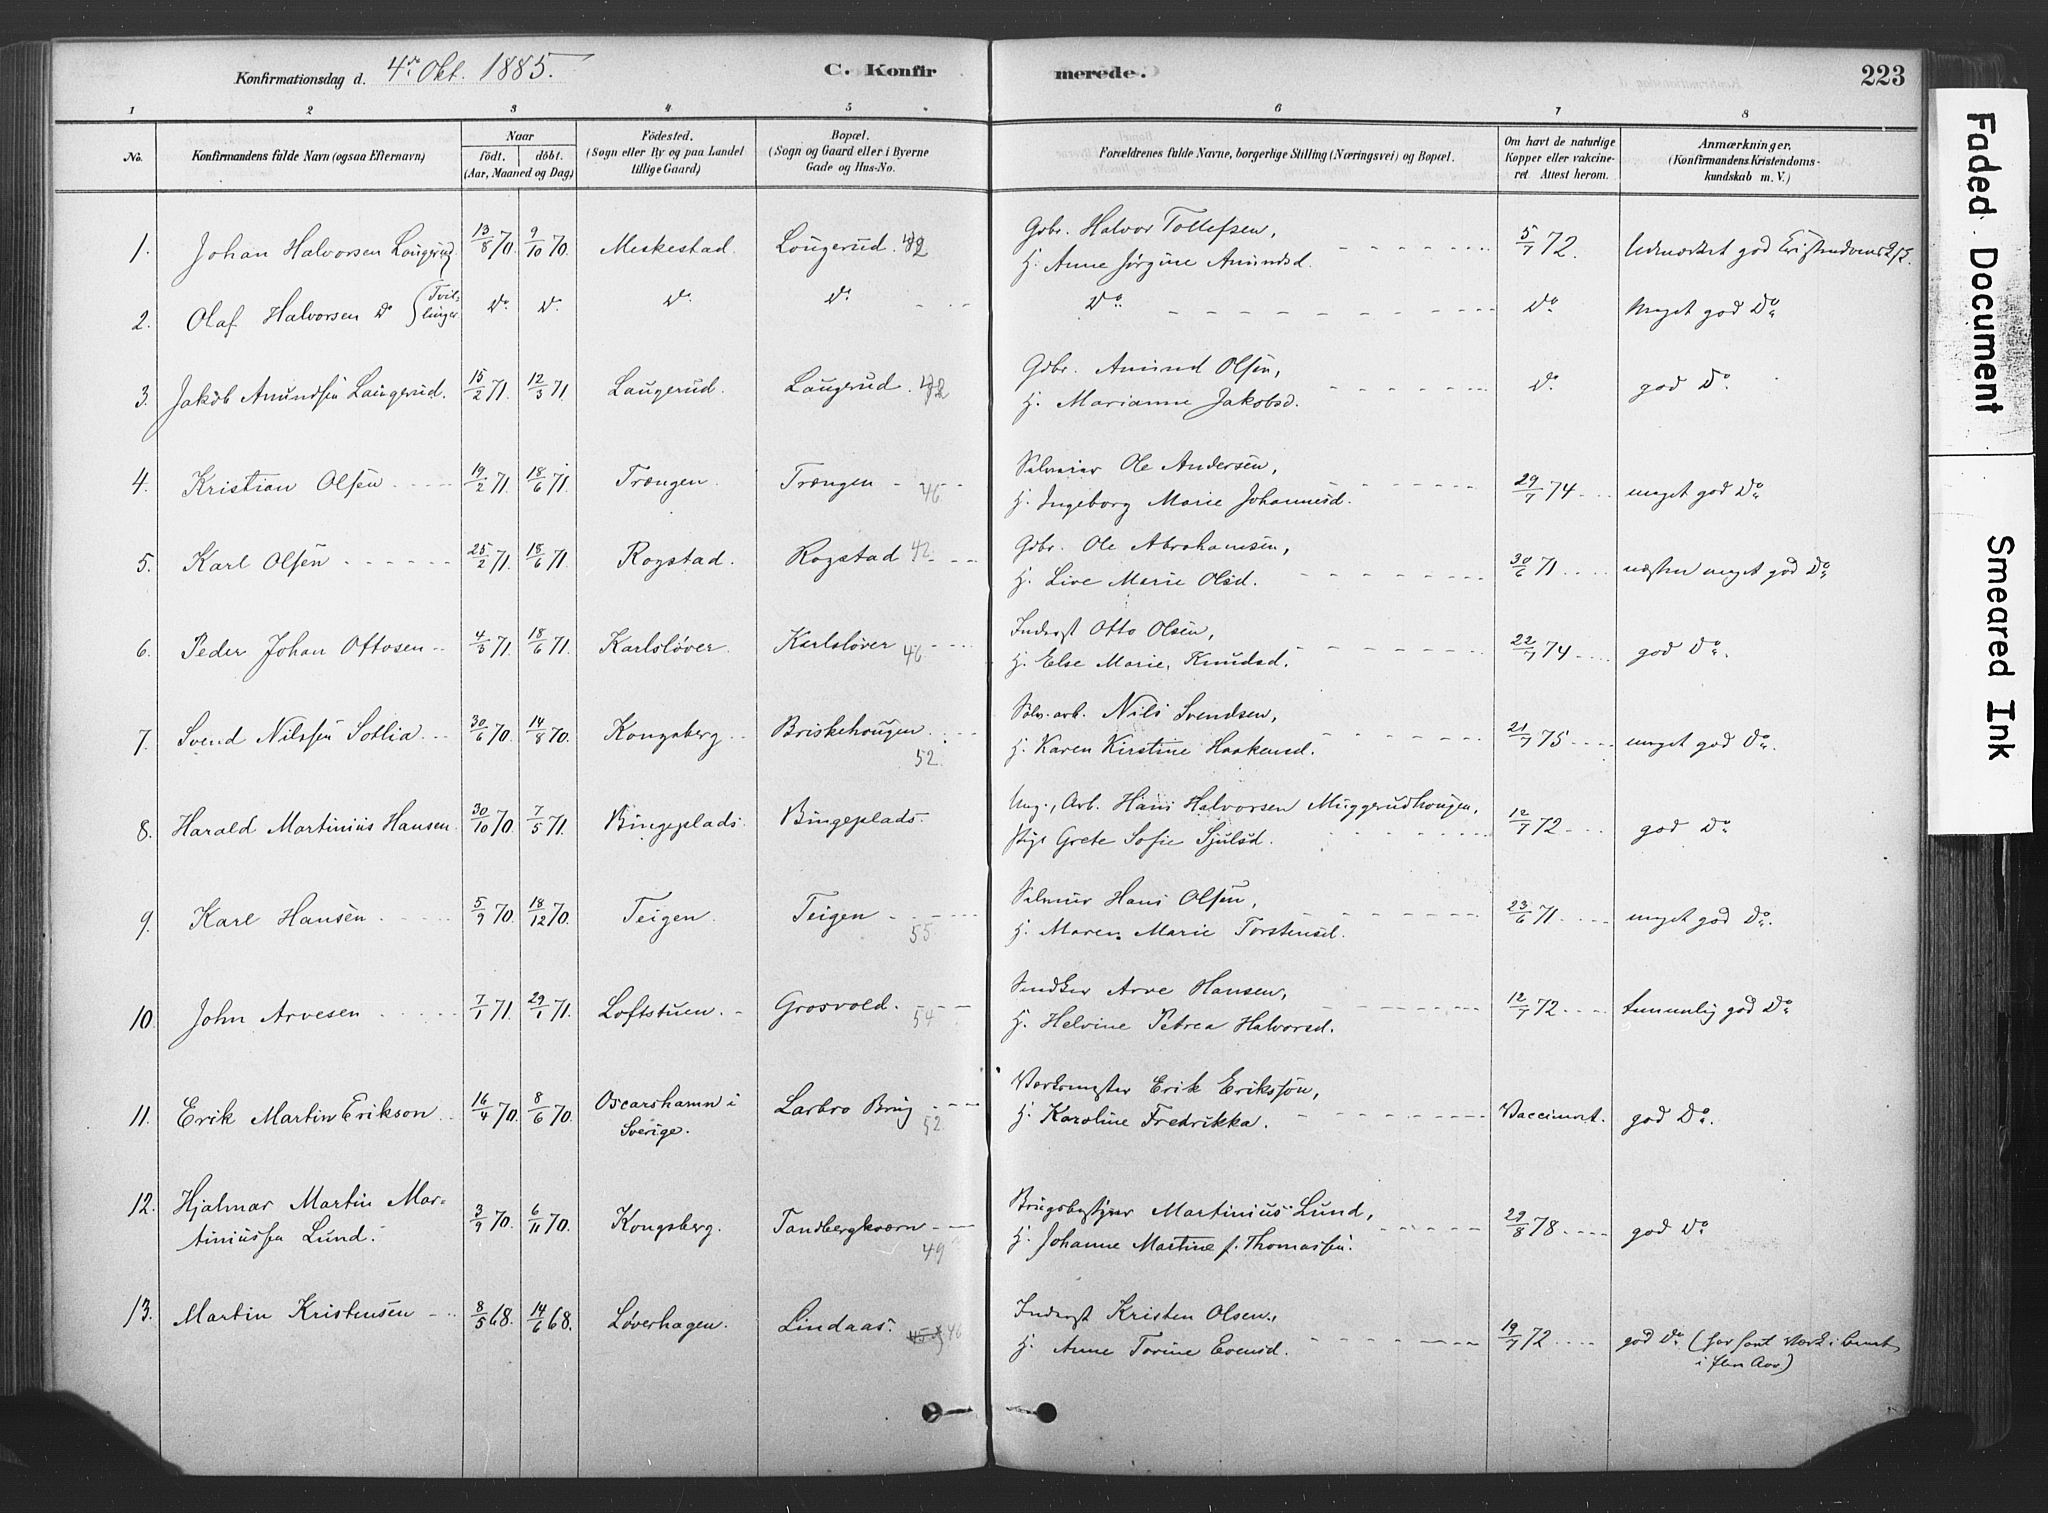 Konfirmationsdag d. 4de Okt. 1885. C. Konfirmerede. 223
1 2 3 4 5 6 7 8
No. Konfirmandens fulde Navn (ogsaa Efternavn) Naar födt. döbt. (Aar, Maaned og Dag) Födested. (Sogn eller By og paa Landet tillige Gaard) Bopæl. (Sogn og Gaard eller i Byerne Gade og Hus-No. Forældrenes fulde Navne, borgerlige Stilling (Næringsvei) og Bopæl. Om havt de naturlige Kopper eller vakcineret. Attest herom. Anmærkninger. (Konfirmandens Kristendomskundskab m. V.)
1. Johan Halvorsen Laugerud 13/8 70. 9/10 70 Meskestad. Lougerud. 42 Gdbr. Halvor Tollefsen, H. Anne Jørgine Amundsd. 5/7 72. Udmærket god
2. Olaf Halvorsen Do {Tvillinger Do Do Do Do Do Do Meget god Do
3. Jakob Amundsen Laugerud. 15/2 71. 12/3 71 Laugerud. Laugerud. 42 Gdbr. Amund Olsen, H. Marianne Jakobsd. Do god Do
4. Kristian Olsen 19/2 71. 18/6 71. Trængen. Trængen 46 Ole Andersen, H. Ingeborg Marie Johannesd. 29/7 74 meget god Do
5. Karl Olsen 25/2 71. 18/6 71. Rogstad. Rogstad 42. Gdbr. Ole Abrahamsen, H. Live Marie Olsd. 30/6 71 næsten meget god Do
6. Peder Johan Ottosen 4/3 71. 18/6 71. Karlsløver. Karlsløver 46 Inderst Otto Olsen, H. Else Marie Knudsd. 22/7 74 god Do
7. Svend Nilssen Sotlia 30/6 70. 14/8 70. Kongsberg Briskehougen 52. Sølv.arb. Nils Svendsen, H. Karen Kirstine Haakensd. 21/7 75 meget god Do
8. Harald Martinius Hansen 30/10 70 7/5 71. Bingeplads Bingeplads. Ung., Arb. Hans Halvorsen Muggerudhougen, Pige Grete Sofie Sjulsd. 12/7 72 god Do
9. Karl Hansen 5/9 70. 18/12 70. Teigen. Teigen 55 Hans Olsen, H. Maren Marie Torstensd. 23/6 71. meget god Do
10. John Arvesen 7/1 71. 29/1 71. Loftstuen. Grosvold. 54 Arve Hansen, H. Helvine Petrea Halvorsd. 12/7 72 temmelig god Do
11. Erik Martin Erikson 16/4 70. 8/6 70. Oscarshamn i Sverige. Larbro Brug 52. Værksmester Erik Eriksson, H. Karoline Fredrikka. Vaccinert. god Do
12. Hjalmar Martin Martiniussen Lund. 3/9 70. 6/11 70. Kongsberg. Tandbergkværn 49 Brugsbestyrer Martinius Lund, H. Johanne Martine f. Thomassen. 29/8 78 god Do
13. Martin Kristensen 8/5 68. 14/6 68. Løverhagen. Lindaas. 46 Inderst Kristen Olsen, H. Anne Torine Evensd. 19/7 72 god Do
Faded Document
Smeared Ink